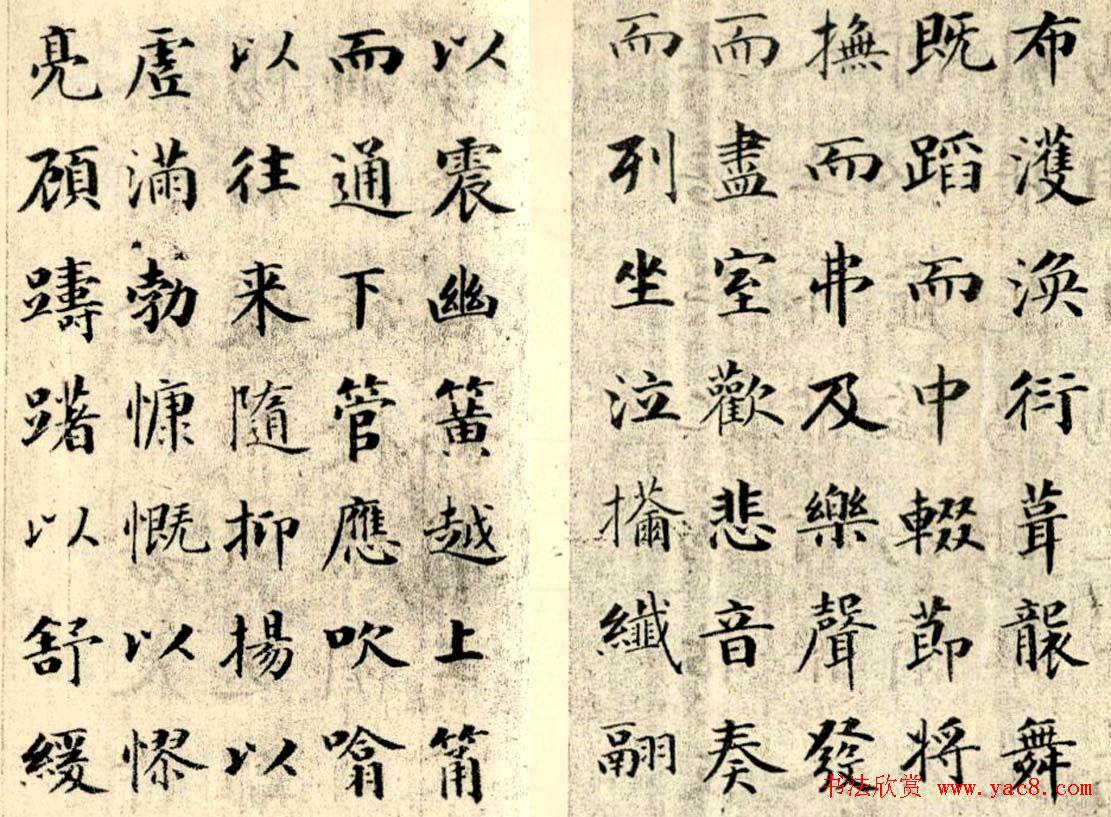 布濩渙衍葺襲舞
既蹈而中輟節將
撫而弗及樂聲發
而盡室歡悲音奏
而列坐泣擩纖翮
以震幽簧越上筩
而通下管應吹噏
以往来隨抑揚以
虛滿勃慷慨以憀
亮顧躊躇以舒緩
书法欣赏 www.yac8.com